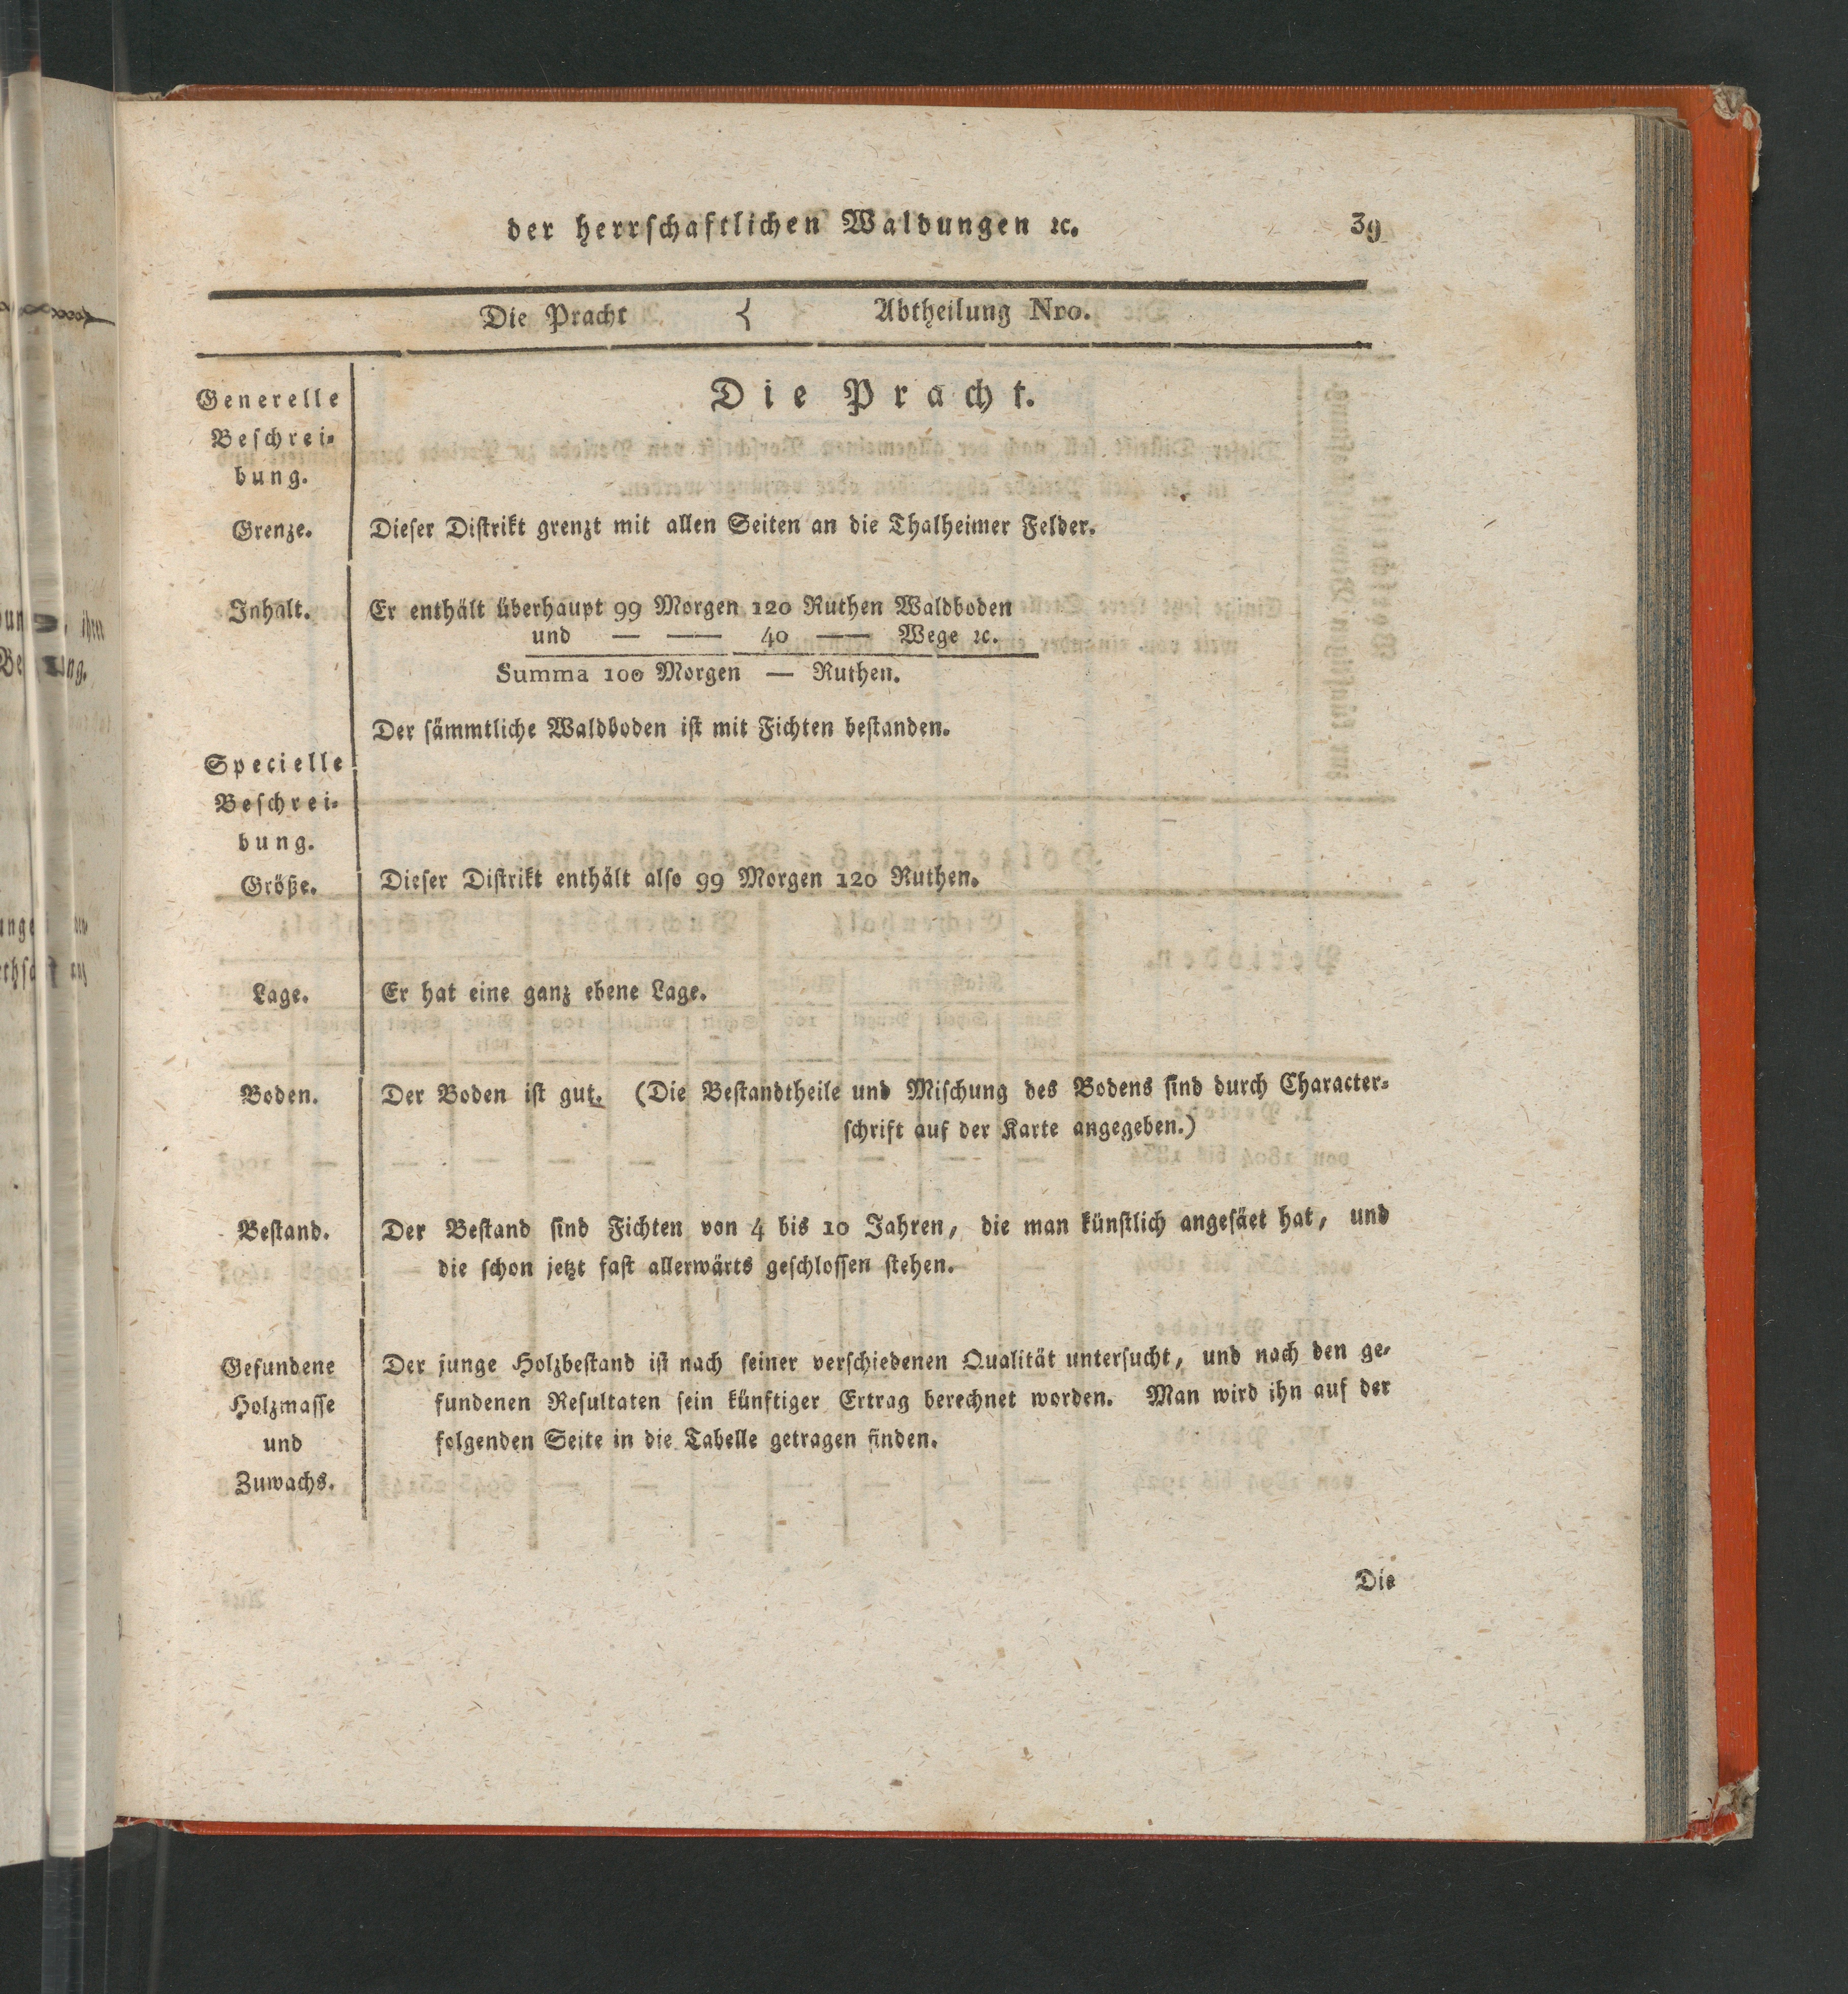 der herrſchaftlichen Waldungen ꝛc. 39
Die Pracht { Abtheilung Nro.
Generelle
Beſchrei-
bung.
Die Pracht.
Grenze. Dieſer Diſtrikt grenzt mit allen Seiten an die Thalheimer Felder.
Inhalt. Er enthält überhaupt 99 Morgen 120 Ruthen Waldboden
und — —— 40 —— Wege ꝛc.
Summa 100 Morgen — Ruthen.
Der ſämmtliche Waldboden iſt mit Fichten beſtanden.
Specielle
Beſchrei-
bung.
Größe. Dieſer Diſtrikt enthält alſo 99 Morgen 120 Ruthen.
Lage. Er hat eine ganz ebene Lage.
Boden. Der Boden iſt gut. (Die Beſtandtheile und Miſchung des Bodens ſind durch Character-
ſchrift auf der Karte angegeben.)
Beſtand. Der Beſtand ſind Fichten von 4 bis 10 Jahren, die man künſtlich angeſäet hat, und
die ſchon jetzt faſt allerwärts geſchloſſen ſtehen.
Gefundene
Holzmaſſe
und
Zuwachs.
Der junge Holzbeſtand iſt nach ſeiner verſchiedenen Qualität unterſucht, und nach den ge-
fundenen Reſultaten ſein künftiger Ertrag berechnet worden. Man wird ihn auf der
folgenden Seite in die Tabelle getragen finden.
Die